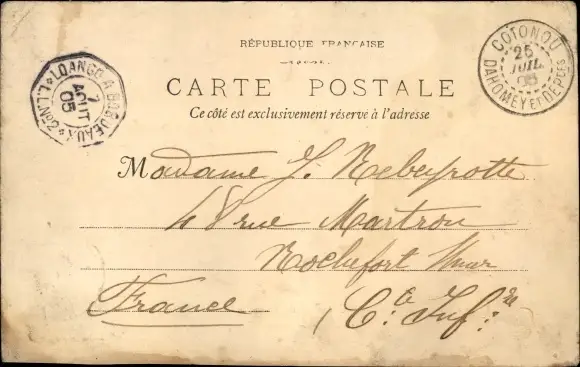 RÉPUBLIQUE FRANÇAISE
CARTE POSTALE
Ce côté est exclusivement réservé à l'adresse
COTONOU
25
JUIL
05
DAHOMEY ET DÉPces
LOANGO A BORDEAUX
7
AOUT
05
L.L. No2
Madame J. Rebeyrotte
48 rue Martrou
Rochefort s/mer
France
(Cte Infre